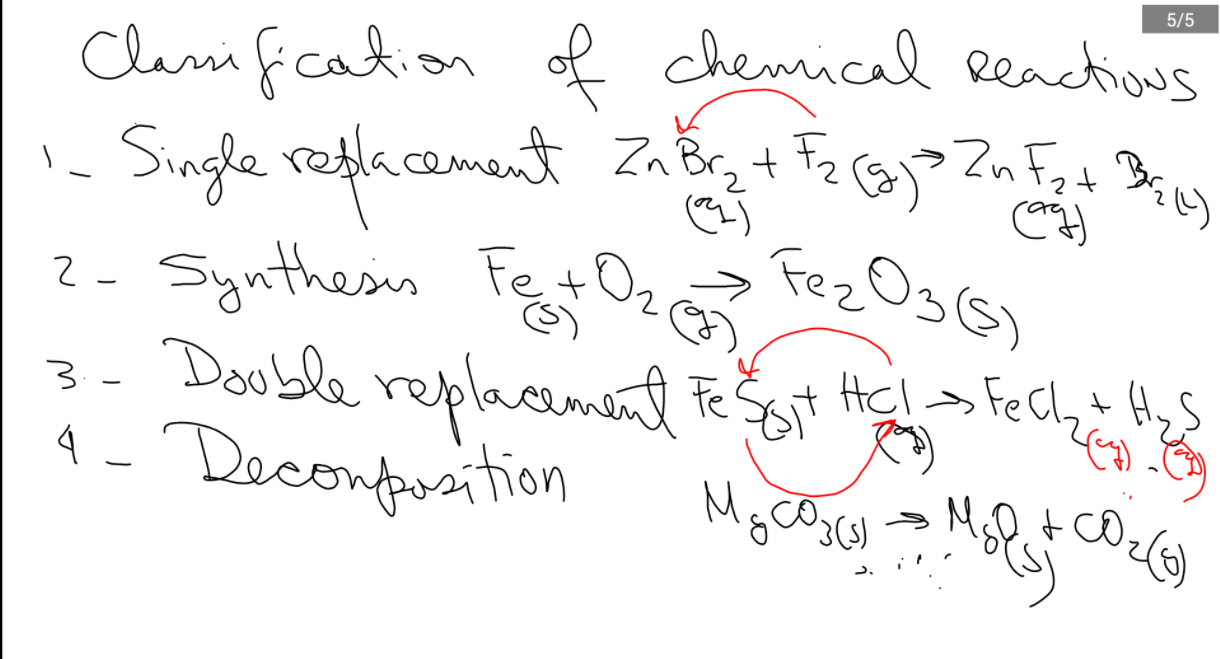 5/5
Classification of chemical reactions
1- Single replacement ZnBr2(aq) + F2(g) → ZnF2(aq) + Br2(L)
2- Synthesis Fe(s) + O2(g) → Fe2O3(s)
3- Double replacement FeS(s) + HCl(aq) → FeCl2(aq) + H2S(g)
4- Decomposition
MgCO3(s) → MgO(s) + CO2(g)